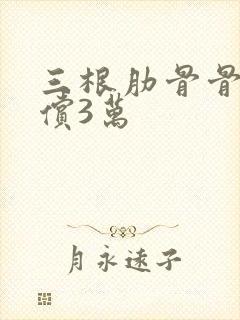 三根肋骨骨
償3萬
月永遠子